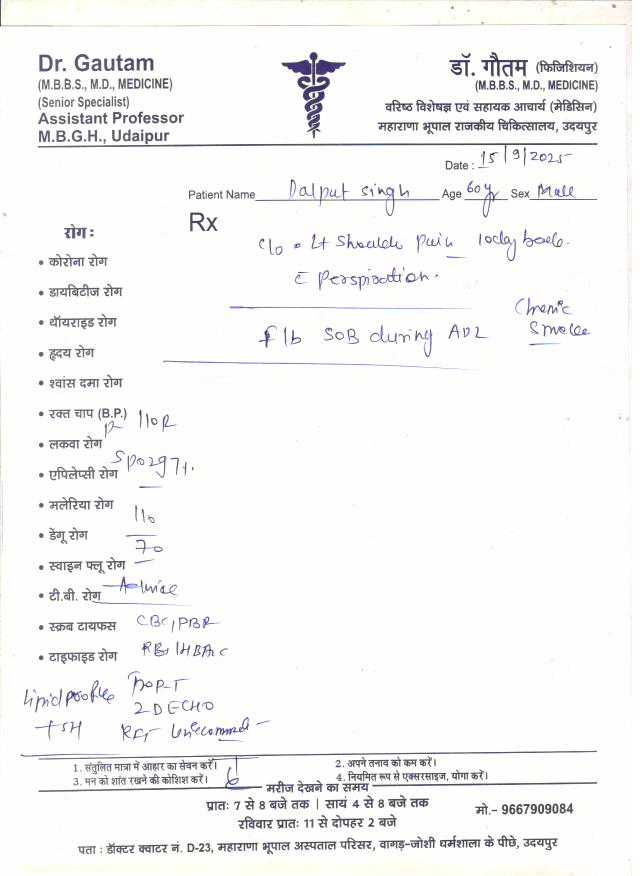 Dr. Gautam
(M.B.B.S., M.D., MEDICINE)
(Senior Specialist)
Assistant Professor
M.B.G.H., Udaipur
डॉ. गौतम (फिजिशियन)
(M.B.B.S., M.D., MEDICINE)
वरिष्ठ विशेषज्ञ एवं सहायक आचार्य (मेडिसिन)
महाराणा भूपाल राजकीय चिकित्सालय, उदयपुर
Date : 15/9/2025
Patient Name Dalput singh Age 60y Sex Male
Rx
c/o Lt Shoulder Pain 10day back.
c̄ Perspiration.
SOB during ADL
Chronic
Smoker
रोग :
• कोरोना रोग
• डायबिटीज रोग
• थॉयराइड रोग
• हृदय रोग
• श्वांस दमा रोग
• रक्त चाप (B.P.)
P- 110R
• लकवा रोग
SpO2 97%.
• एपिलेप्सी रोग
• मलेरिया रोग
110
• डेंगू रोग
70
• स्वाइन फ्लू रोग
• टी.बी. रोग Advice
• स्क्रब टायफस CBC, PBF
• टाइफाइड रोग RBS, HBA1C
Lipid profile Trop-T
2D ECHO
TSH RFT
1. संतुलित मात्रा में आहार का सेवन करें।
2. अपने तनाव को कम करें।
3. मन को शांत रखने की कोशिश करें।
4. नियमित रूप से एक्सरसाइज, योगा करें।
मरीज देखने का समय
प्रातः 7 से 8 बजे तक | सायं 4 से 8 बजे तक
रविवार प्रातः 11 से दोपहर 2 बजे
मो.- 9667909084
पता : डॉक्टर क्वाटर नं. D-23, महाराणा भूपाल अस्पताल परिसर, वागड़-जोशी धर्मशाला के पीछे, उदयपुर